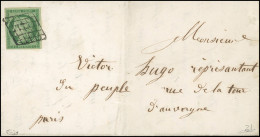 Monsieur
Victor hugo réprésentant
du peuple rue de la tour
d'auvergne
paris